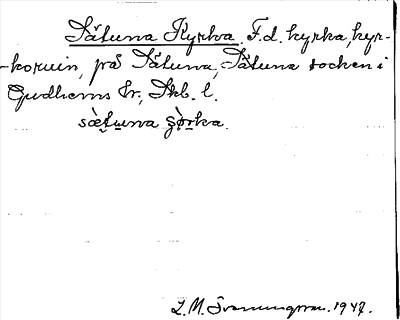 Sätuna Kyrka. F.d. kyrka, kyr-
-koruin, på Sätuna, Sätuna socken i
Gudhems hr, Skb. l.
sæ̀tuna ҫòrka.
L. M. Svenungsson. 1947.